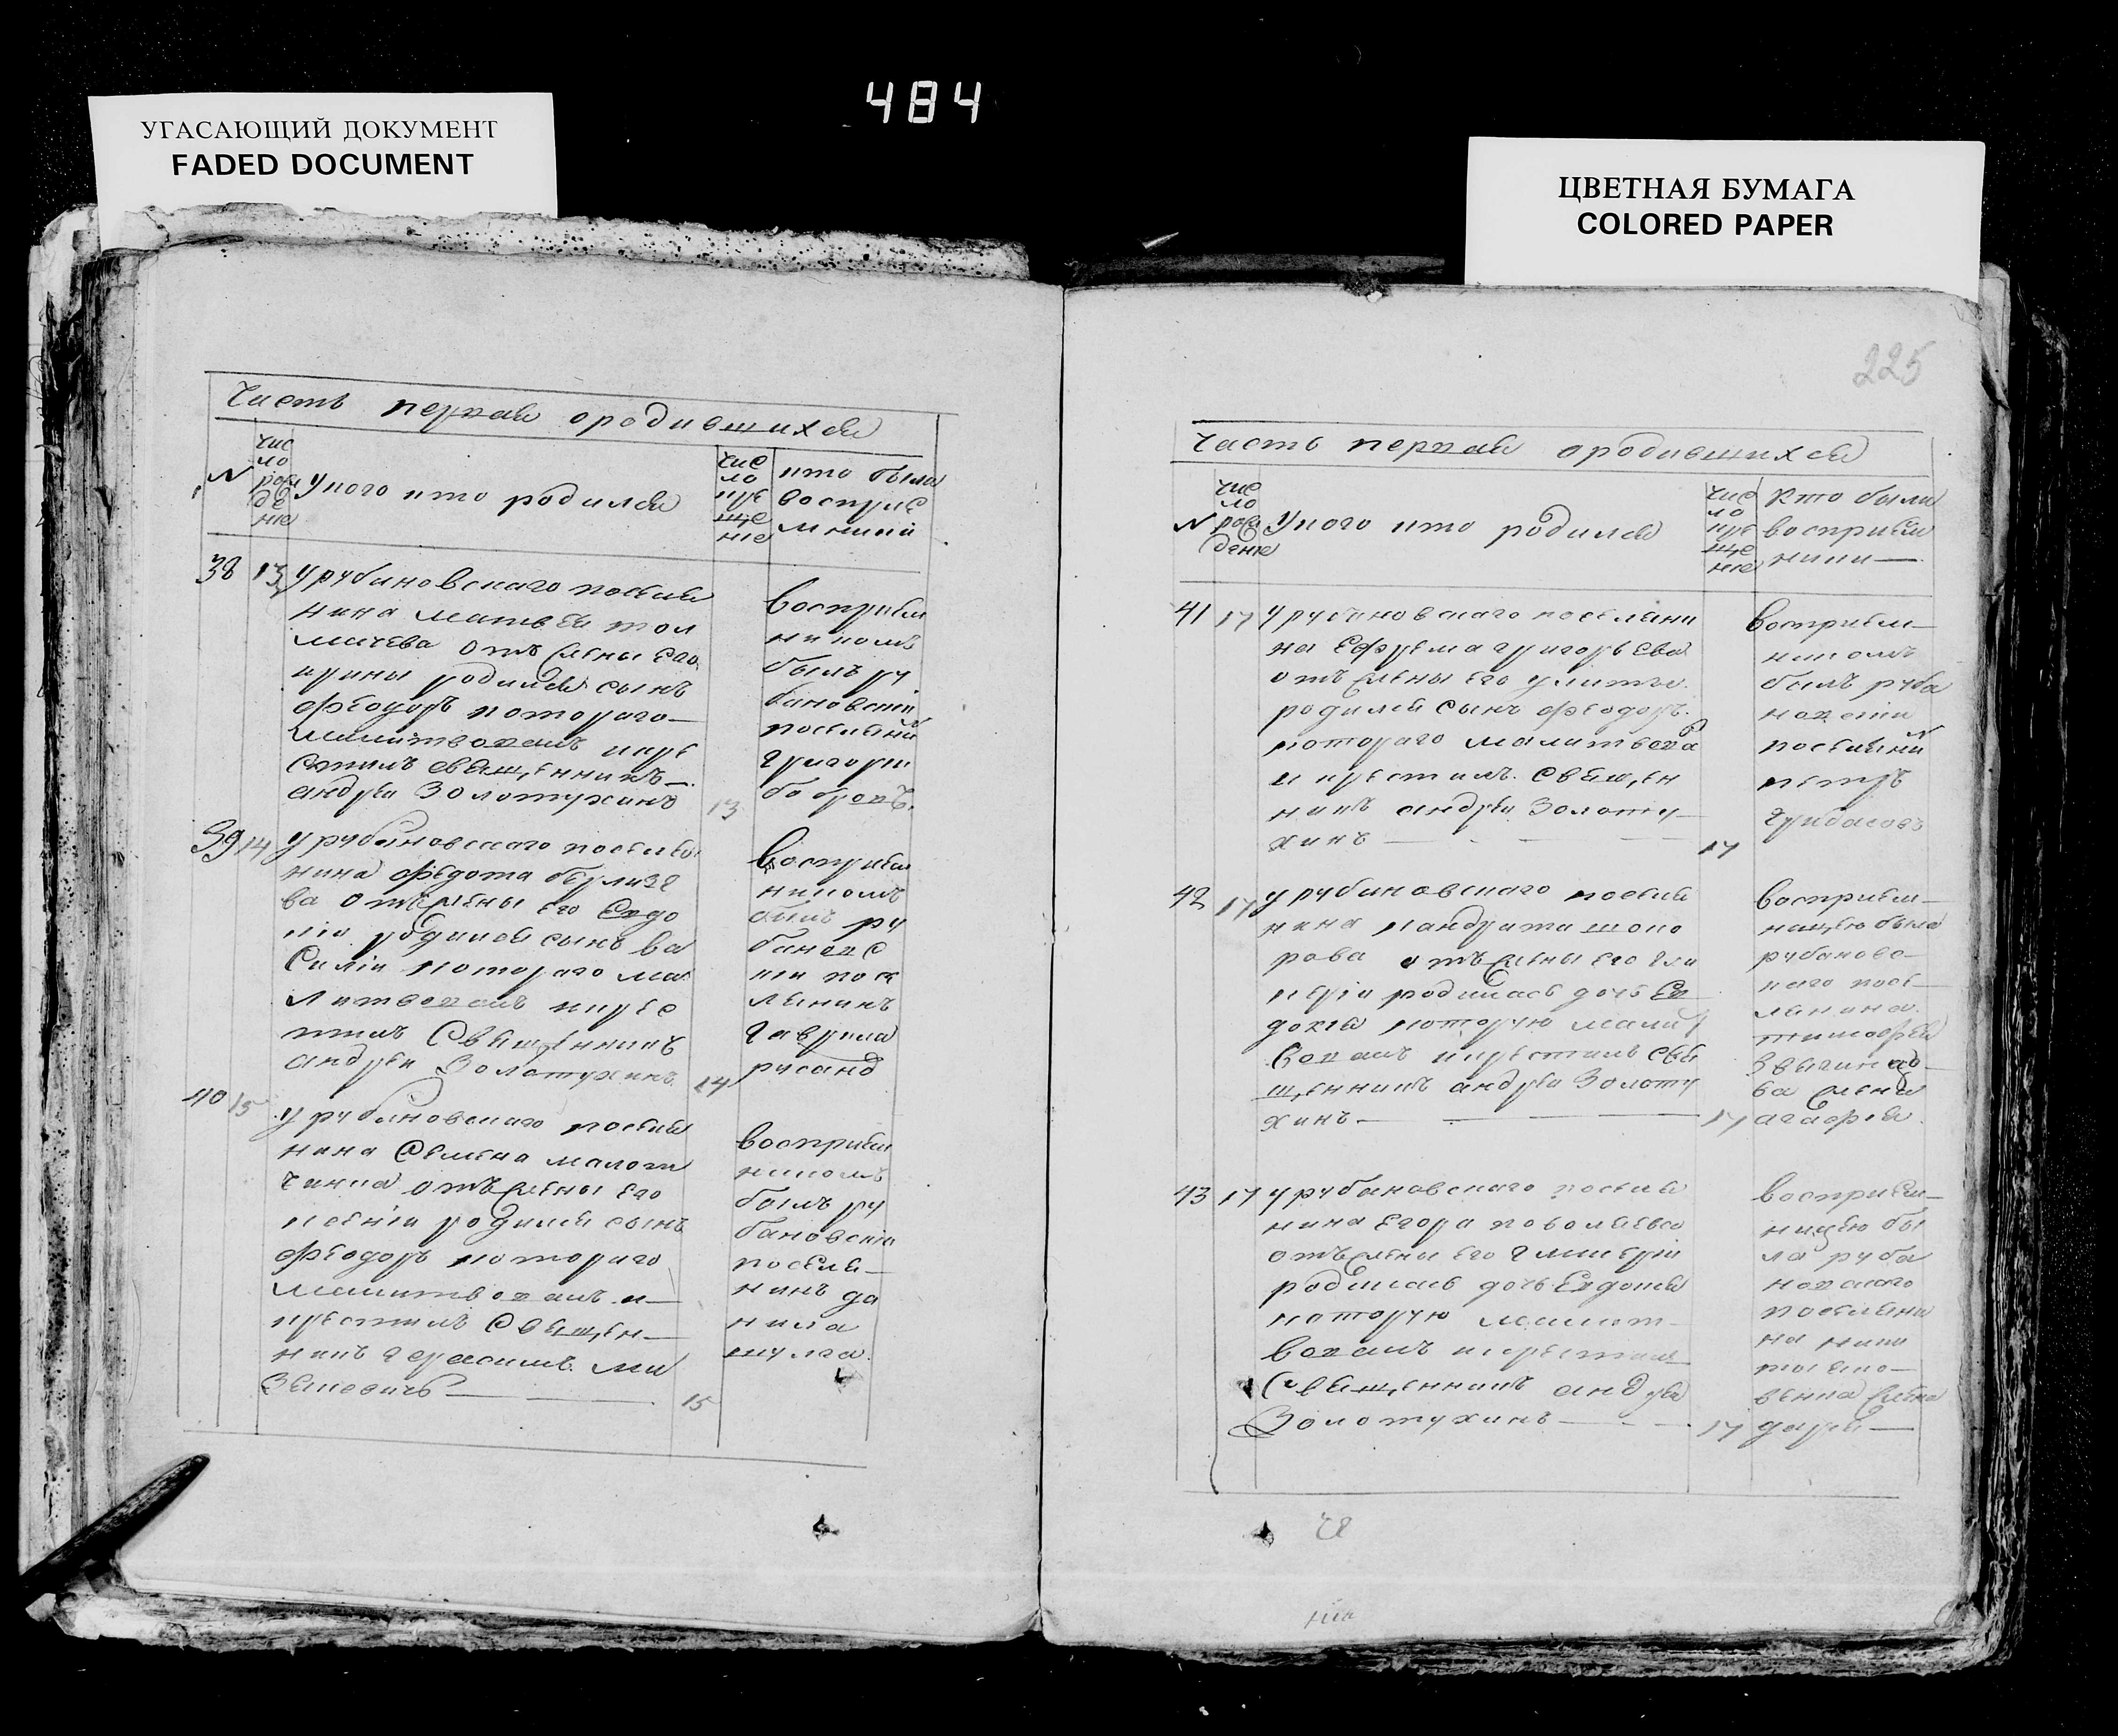 484
УГАСАЮЩИЙ ДОКУМЕНТ
FADED DOCUMENT
ЦВЕТНАЯ БУМАГА
COLORED PAPER
Часть первая ородившихся
N
чис
ло
рож
де
ние
Укого кто родился
чис
ло
кре
ще
ние
кто были
восприе
мники
38 13 урубановскаго поселя
нина матвея тол
мачева отъ жены его
ирины родился сынъ
феодоръ котораго
молитвовалъ икре
стилъ священникъ
андреи Золотухинъ 13
восприем
никомъ
былъ ру
бановскіи
поселянинъ
григори
бобровъ.
39 14 урубановскаго поселя
нина федота
ва отъ жены его Евдо
кіи родился сынъ ва
силіи котораго мо
литвовалъ икрес
тилъ Священникъ
андреи Золотухинъ 14
восприем
никомъ
былъ ру
бановс
кіи посе
лянинъ
гаврила
40 15
урубановскаго поселя
нина Семена
отъ жены его
ксеніи родился сынъ
феодоръ котораго
молитвовалъ и
крестилъ Священ
никъ герасимъ
15
восприем
никомъ
былъ ру
бановскіи
поселя
нинъ да
нила
шулга.
225
Часть первая ородившихся
N
чис
ло
рож
дение
Укого кто родился
чис
ло
кре
ще
ние
Кто были
восприем
ники
41 17 урубановскаго поселяни
на Ефрема григорьева
отъ жены его улиты
родился сынъ феодоръ.
котораго молитвова
и крестилъ. Священ
никъ андреи Золоту
хинъ 17
восприем
никомъ
былъ руба
новскіи
поселянинъ
петръ
42 17 урубановскаго поселя
нина кандрата
рова отъ жены его гли
керіи родилась дочь Ев
докия которую молит
вовалъ икрестилъ свя
щенникъ андреи Золоту
хинъ 17
восприем
ницею была
рубановс
каго посе
лянина
тимофея
ва жена
агафия.
43 17 урубановскаго поселя
нина Егора
отъ жены его гликеріи
родилась дочь Евдокия
которую молит
вовалъ икрестилъ
Священникъ андреи
Золотухинъ 17
восприем
ницею бы
ла руба
новскаго
поселяни
на ники
ты
жена
дарья